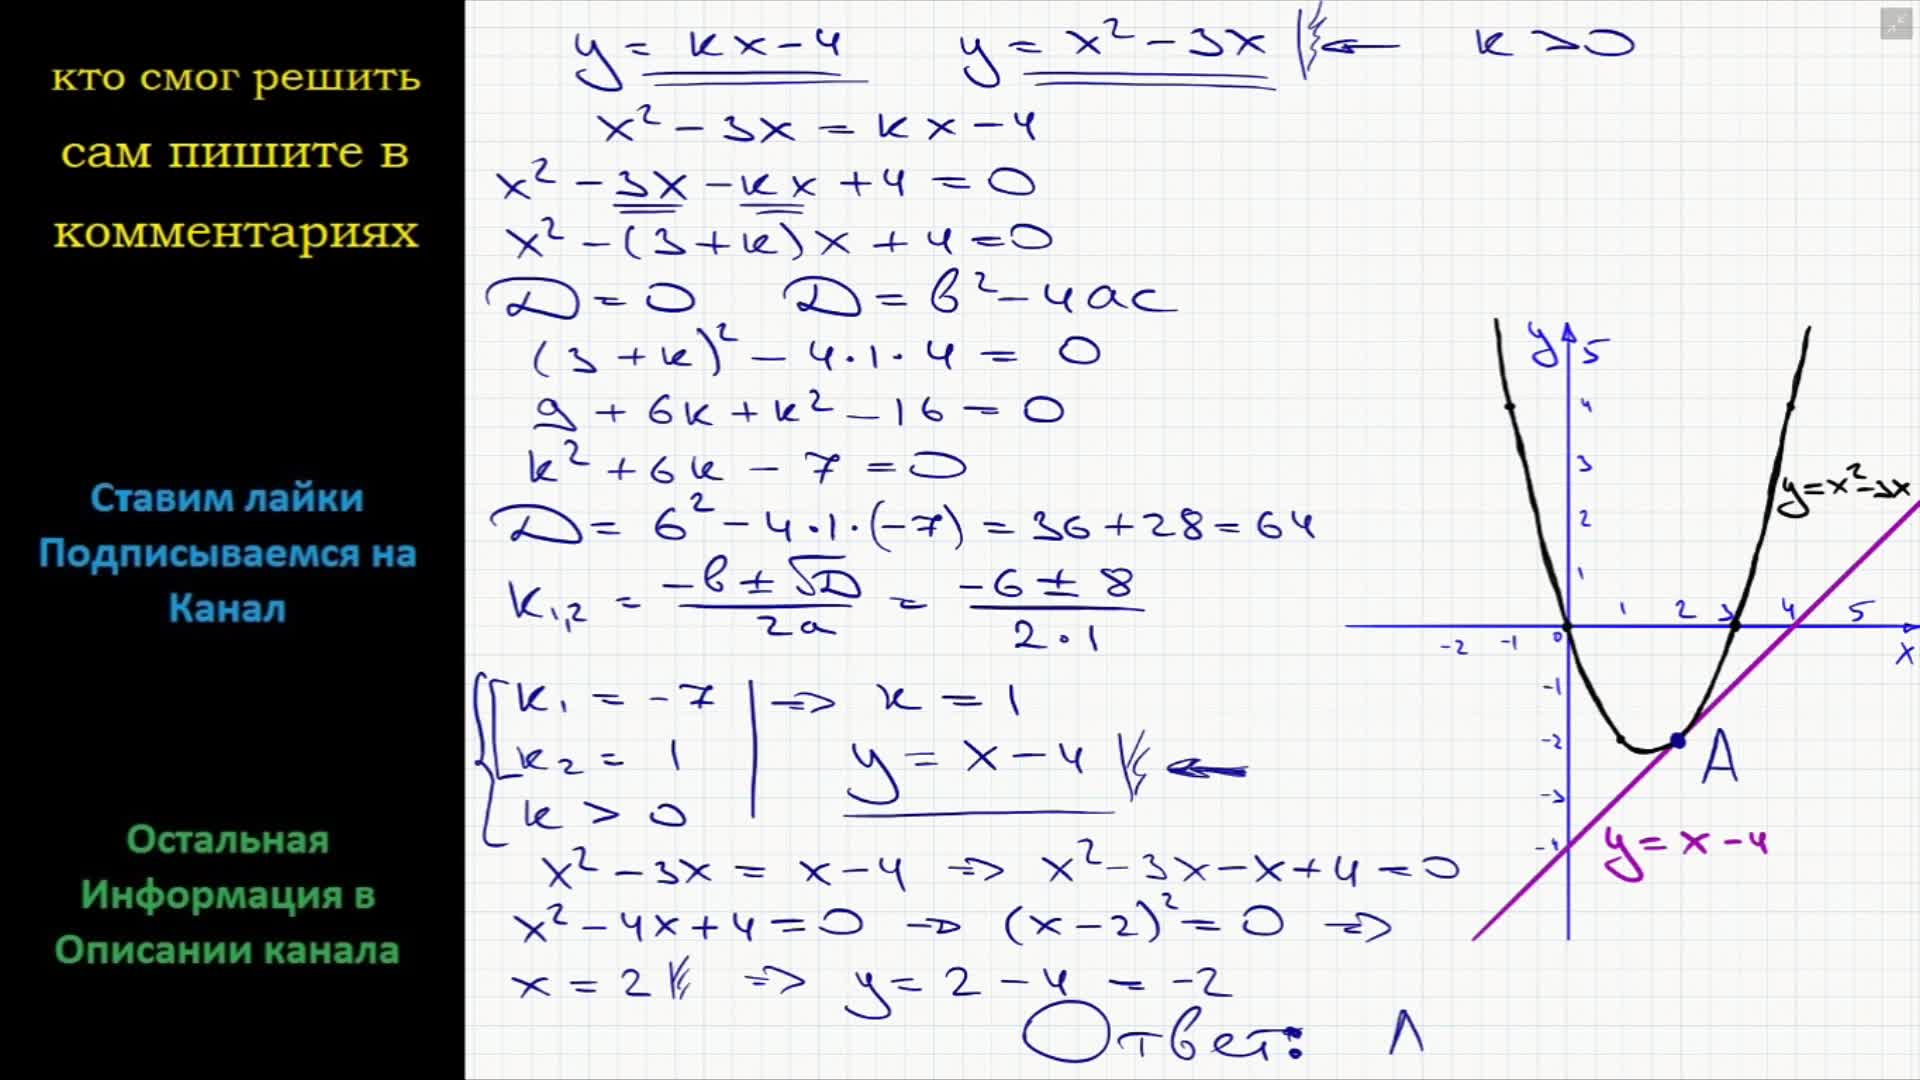 кто смог решить
сам пишите в
комментариях
Ставим лайки
Подписываемся на
Канал
Остальная
Информация в
Описании канала
y = kx - 4   y = x² - 3x   k > 0
x² - 3x = kx - 4
x² - 3x - kx + 4 = 0
x² - (3 + k)x + 4 = 0
D = 0   D = b² - 4ac
(3 + k)² - 4·1·4 = 0
9 + 6k + k² - 16 = 0
k² + 6k - 7 = 0
D = 6² - 4·1·(-7) = 36 + 28 = 64
k₁,₂ = (-b ± √D)/(2a) = (-6 ± 8)/(2·1)
k₁ = -7 => k = 1
k₂ = 1   y = x - 4
k > 0
x² - 3x = x - 4 => x² - 3x - x + 4 = 0
x² - 4x + 4 = 0 => (x - 2)² = 0 =>
x = 2 => y = 2 - 4 = -2
Ответ:
y 5
4
3
2
1
y = x² - 3x
1 2 3 4 5
-2 -1 0 x
-1
-2
A
-3
-4
y = x - 4